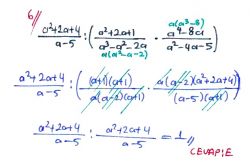 6)
a(a³-8)
a²+2a+4 / a-5 : (a²+2a+1 / a³-a²-2a · a⁴-8a / a²-4a-5)
a(a²-a-2)
a²+2a+4 / a-5 : ((a+1)(a+1) / a(a-2)(a+1) · a(a-2)(a²+2a+4) / (a-5)(a+1))
a²+2a+4 / a-5 : a²+2a+4 / a-5 = 1 //
CEVAP:E